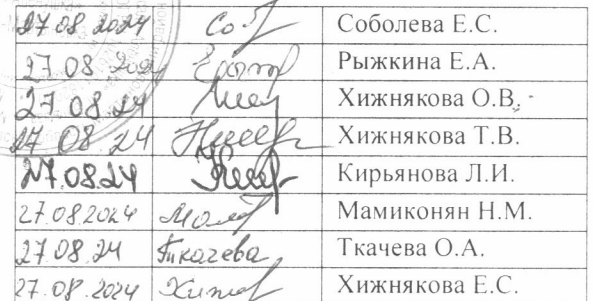 27.08.2024 Соб Соболева Е.С.
27.08.2024 Рыжкина Е.А.
27.08.24 Хижнякова О.В.
27.08.24 Хижнякова Т.В.
27.08.24 Кирьянова Л.И.
27.08.2024 Мамиконян Н.М.
27.08.24 Ткачева Ткачева О.А.
27.08.2024 Хижнякова Е.С.